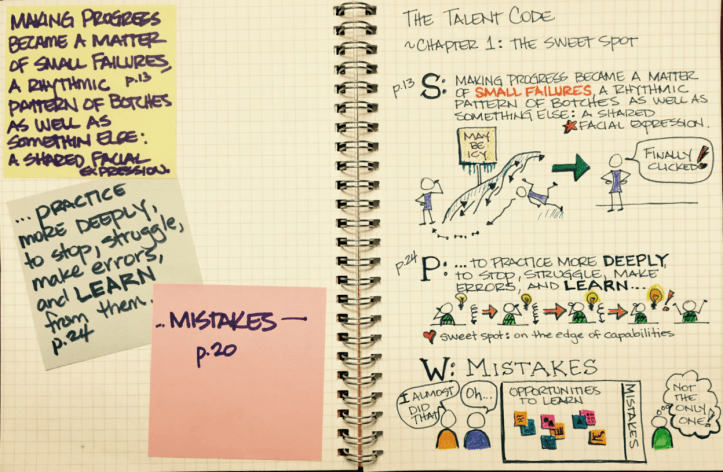 MAKING PROGRESS
BECAME A MATTER
OF SMALL FAILURES,
A RHYTHMIC p.13
PATTERN OF BOTCHES
AS WELL AS
SOMETHIN ELSE:
A SHARED FACIAL
EXPRESSION.
...PRACTICE
MORE DEEPLY,
to stop, struggle,
make errors,
and LEARN
from them.
p.24
..MISTAKES —
p.20
THE TALENT CODE
~CHAPTER 1: THE SWEET SPOT
p.13
S: MAKING PROGRESS BECAME A MATTER
OF SMALL FAILURES, A RHYTHMIC
PATTERN OF BOTCHES AS WELL AS
SOMETHING ELSE: A SHARED
FACIAL EXPRESSION.
MAY
BE
ICY
FINALLY
CLICKED!
p.24
P: ...TO PRACTICE MORE DEEPLY,
TO STOP, STRUGGLE, MAKE
ERRORS, AND LEARN...
sweet spot: on the edge of capabilities
W: MISTAKES
I ALMOST
DID
THAT
Oh...
OPPORTUNITIES
TO LEARN
MISTAKES
NOT
THE
ONLY
ONE!